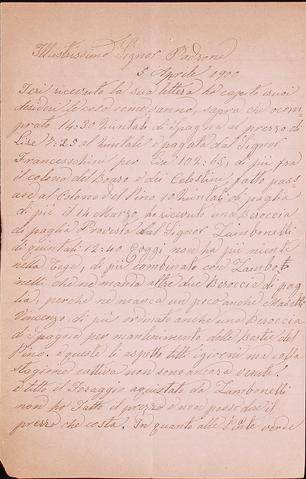 Illustrissimo Signor Padrone
5 Aprile 1900
Ieri ricevuto la sua lettera ho capito i suoi
desideri le cose come vanno, saprà che ò com
prato 14:30 Quintali di Spagna al prezzo di
Lire 7:25 al Quintale e pagata dal Signor
Franceschini per Lire 103:65, di più fra
il colono del Boaro e dei Celestini, fatto pas
sare al Colono del Pino 10 Quintali di paglia
di più il 14 Marzo, ò ricevuto una Beroccia
di paglia Provista dal Signor Zambonelli
di quintali 12:40 e oggi non hà più niente
nella Tegé, di più combinato con Zambo
nelli che ne manda altre due Beroccie di pag
lia, perchè ne manca un poco anche Masetti
Vincenzo di più ordinato anche una Beroccia
di Spagna per mantenimento delle Bestie del
Pino. e queste le aspetto tutti i giorni ma colla
Stagione cattiva non sono ancora venute
e tutto il Foraggio aquistato da Zambonelli
non ho fatto il prezzo e non posso dire il
prezzo che costa? In quanto alle Piante verde